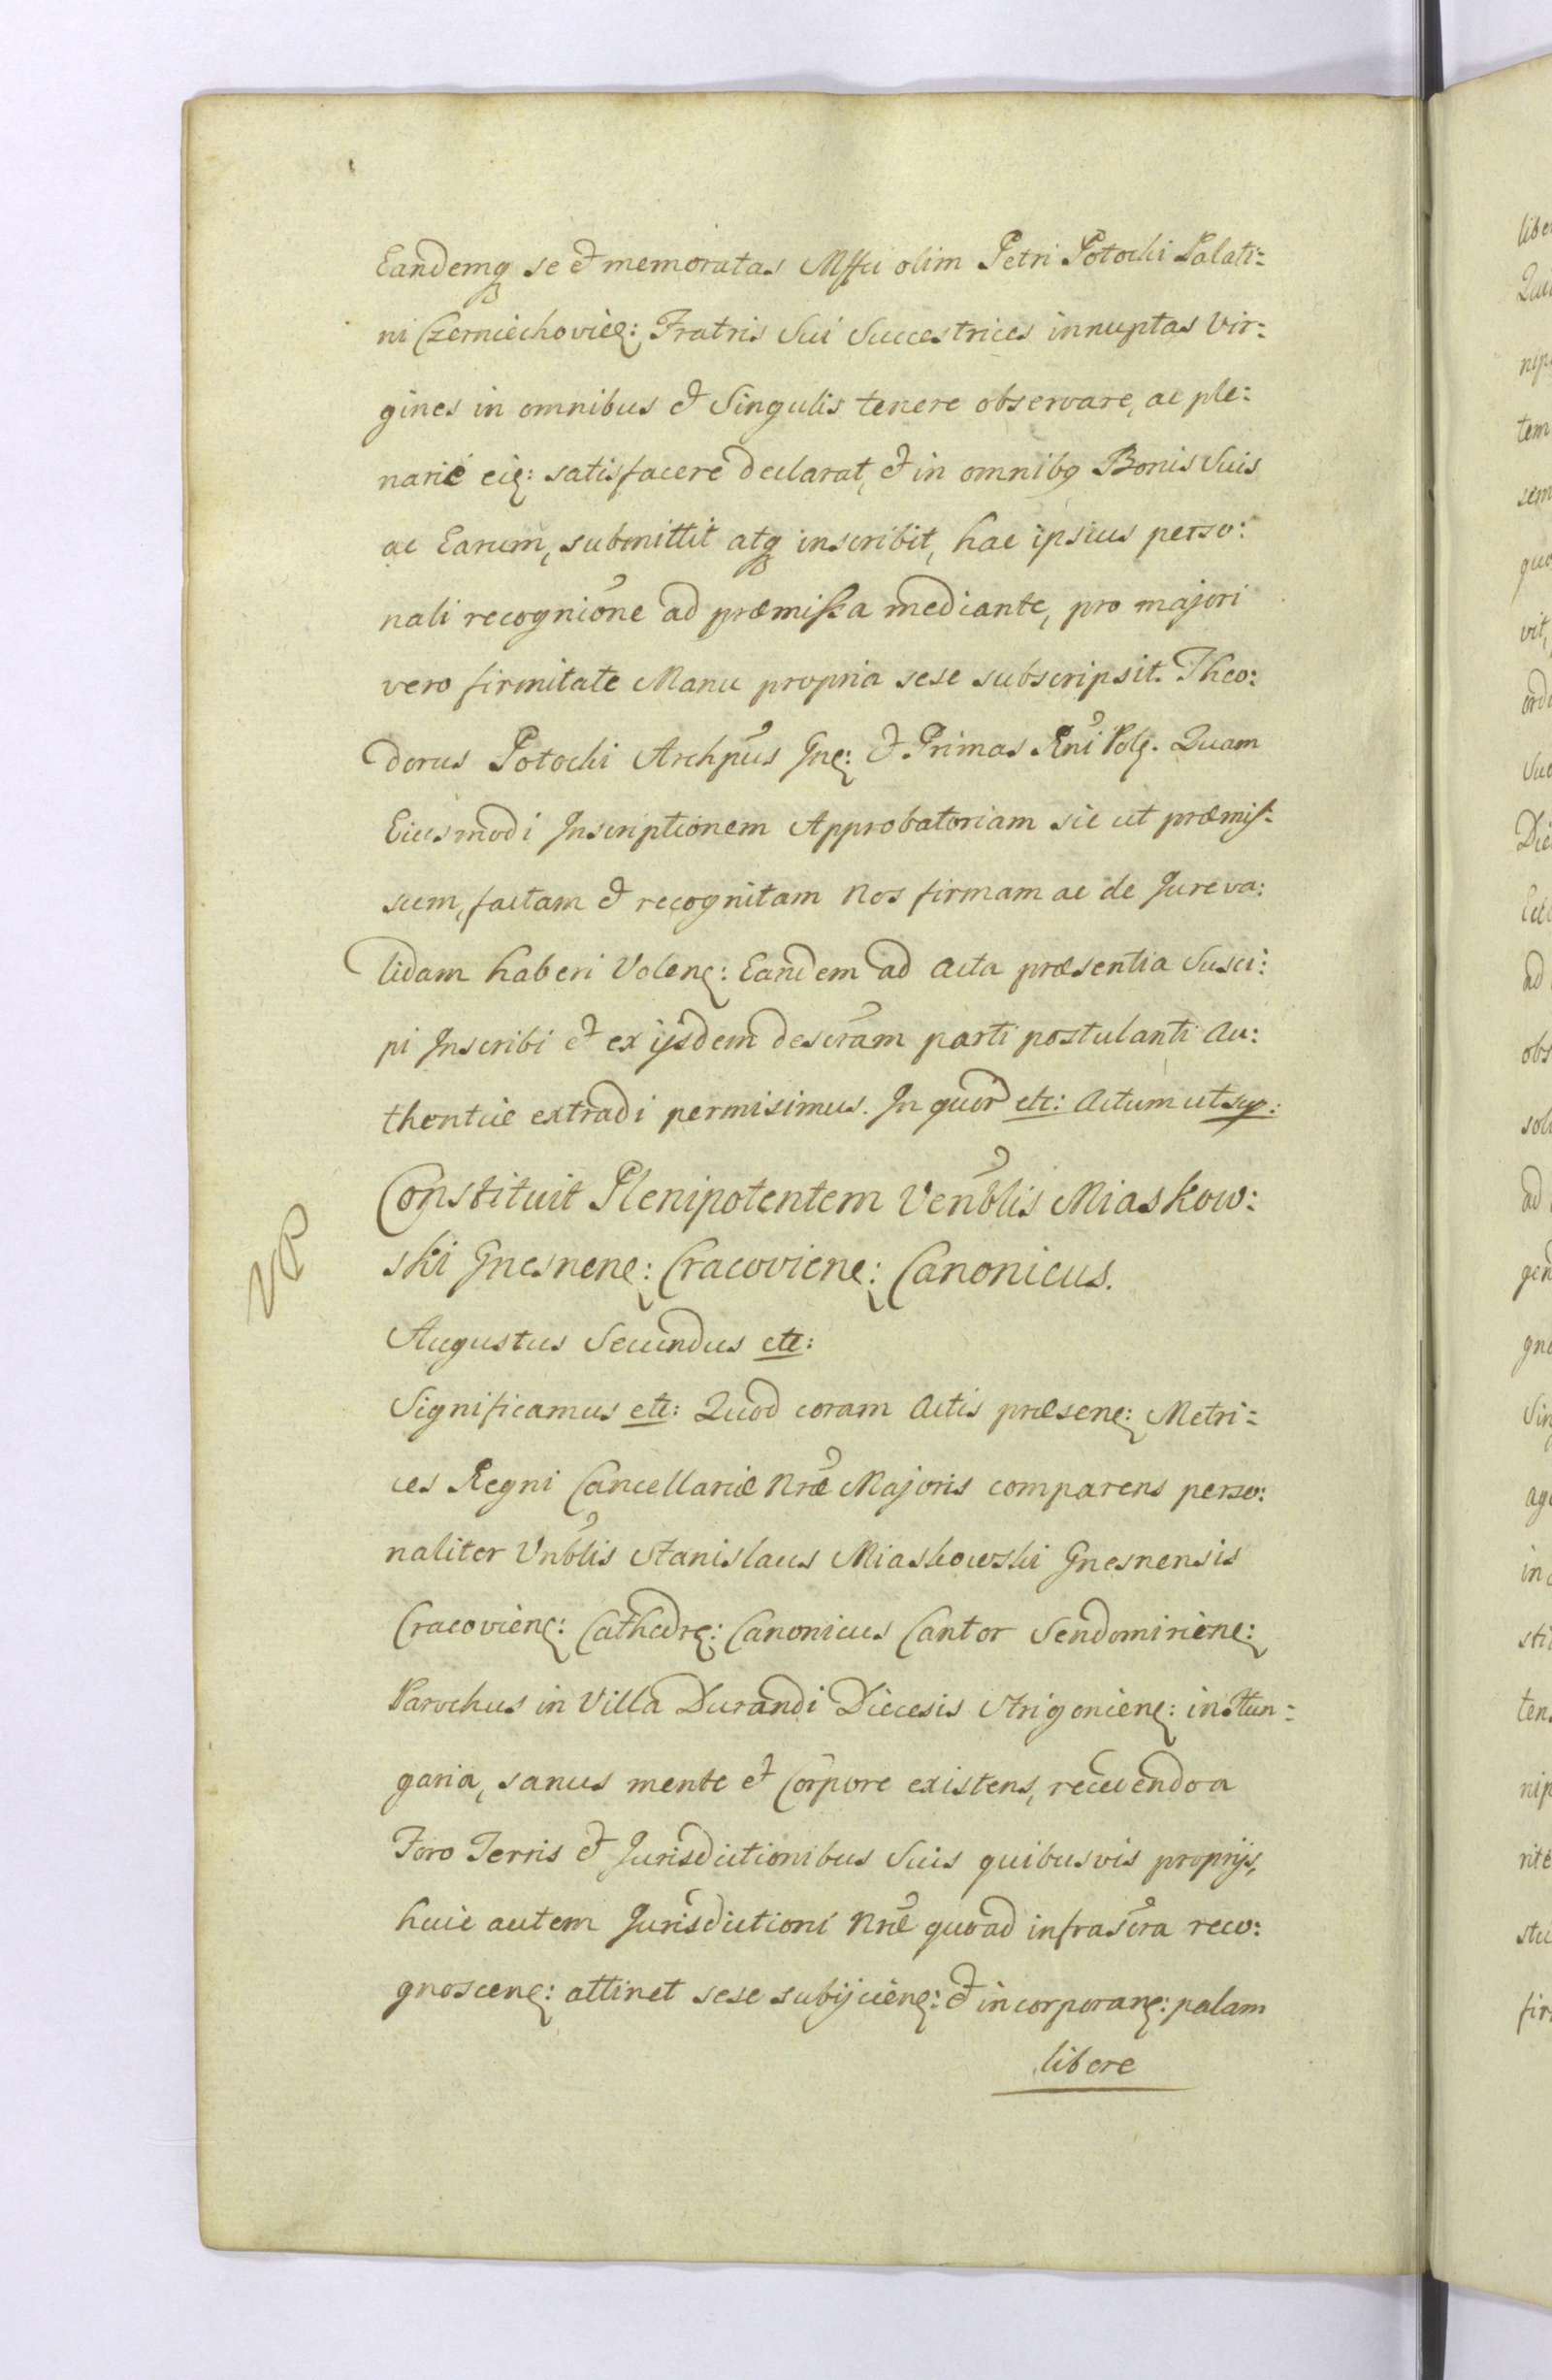 Eandemq se et memoratas Mffci olim Petri Potocki Palati=
ni Czerniechovieñ: Fratris Sui Succestrices innuptas Vir=
gines in omnibus et Singulis tenere observare, ac ple:
narie eiq: satisfacere declarat, et in omnibq Bonis Suis
ac Earum, submittit atq inscribit, hac ipsius perso:
nali recognione ad præmissa mediante, pro majori
vero firmitate Manu propria sese subscripsit. Theo:
dorus Potocki Archpus Gne: et Primas Rni Pole. Quam
Eiusmodi Inscriptionem Approbatoriam sic ut præmis:
sum, factam et recognitam Nos firmam ac de Jure va:
lidam haberi Volene: Eandem ad Acta præsentia Susci:
pi Inscribi et ex ijsdem descram parti postulanti Au:
thentice extradi permisimus. In quor etc: Actum ut sup:
Constituit Plenipotentem Venblis Miaskow:
ski Gnesnene: Cracoviene: Canonicus.
VR
Augustus Secundus etc:
Significamus etc: Quod coram Actis præsene: Metri=
ces Regni Cancellariæ Nræ Majoris comparens perso:
naliter Vnblis Stanislaus Miaskowski Gnesnensis
Cracoviene: Cathedre: Canonicus Cantor Sendomiriene:
Parochus in Villa Durandi Diecesis Strigoniene: in Hun=
garia, sanus mente et Corpore existens, recedendo a
Foro Terris et Jurisdictionibus Suis quibusvis proprijs,
huic autem Jurisdictioni Nræ quoad infrascra reco:
gnoscene: attinet sese subijciene: et incorporane: palam
libere